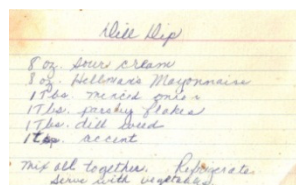 Dill Dip
8 oz. sour cream
8 oz. Hellman's Mayonnaise
1 Tbs. minced onion
1 Tbs. parsley flakes
1 Tbs. dill weed
1 tsp. accent
Mix all together. Refrigerate.
Serve with vegetables